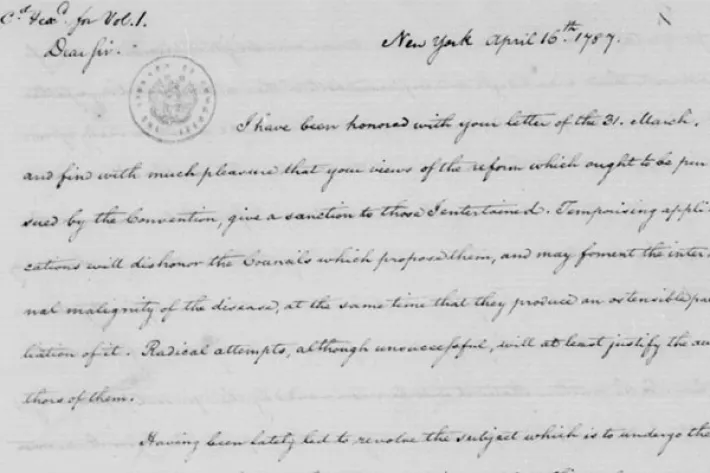 Cd. Fex'd. for Vol. 1.
New York April 16th. 1787.
Dear Sir.
I have been honored with your letter of the 31. March,
and find with much pleasure that your views of the reform which ought to be pur
sued by the Convention, give a sanction to those I entertained. Temporising appli
cations will dishonor the Councils which propose them, and may foment the inter
nal malignity of the disease, at the same time that they produce an ostensible pal
liation of it. Radical attempts, although unsuccessful, will at least justify the au
thors of them.
Having been lately led to revolve the subject which is to undergo the